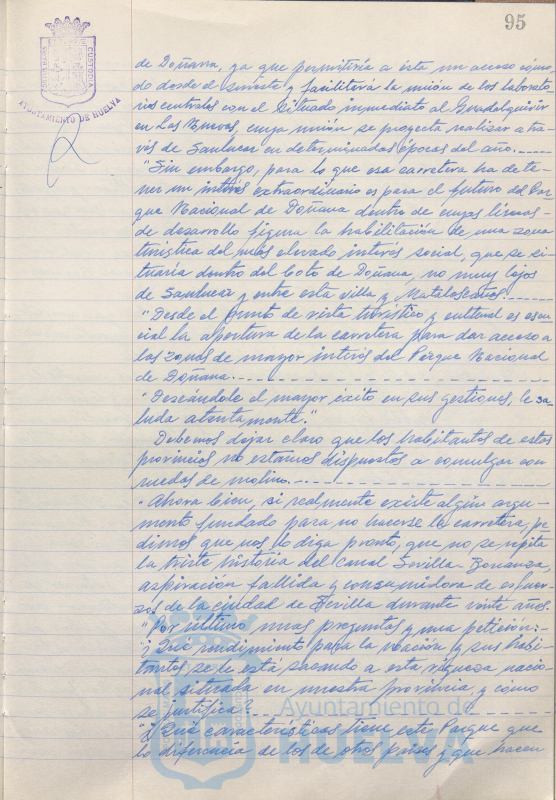 95
CUSTODIA
AYUNTAMIENTO DE HUELVA
de Doñana, ya que permitiría a ésta un acceso cómo-
do desde el sureste y facilitará la unión de los laborato-
rios centrales con el situado inmediato al Guadalquivir
en Las Nuevas, cuya unión se proyecta realizar a tra-
vés de Sanlucar en determinadas épocas del año.
"Sin embargo, para lo que esa carretera ha de te-
ner un interés extraordinario es para el futuro del Par-
que Nacional de Doñana dentro de cuyas líneas
de desarrollo figura la habilitación de una zona
turística del más elevado interés social, que se si-
tuaria dentro del Coto de Doñana, no muy lejos
de Sanlucar y entre esta villa y Matalascañas.
"Desde el punto de vista turístico y cultural es esen-
cial la apertura de la carretera para dar acceso a
las zonas de mayor interés del Parque Nacional
de Doñana.
"Deseándole el mayor éxito en sus gestiones, le sa-
luda atentamente."
Debemos dejar claro que los habitantes de estas
provincias no estamos dispuestos a comulgar con
ruedas de molino.
"Ahora bien, si realmente existe algún argu-
mento fundado para no hacerse la carretera, pe-
dimos que nos lo diga pronto, que no se repita
la triste historia del canal Sevilla-Bonanza,
aspiración fallida y consumidora de esfuer-
zos de la ciudad de Sevilla durante veinte años.
"Por último unas preguntas y una petición:
"¿Qué rendimiento para la nación y sus habi-
tantes se le está sacando a esta riqueza nacio-
nal situada en nuestra provincia, y cómo
se justifica?
"¿Qué características tiene este Parque que
lo diferencia de los de otros países y que hacen
Ayuntamiento de
HUELVA